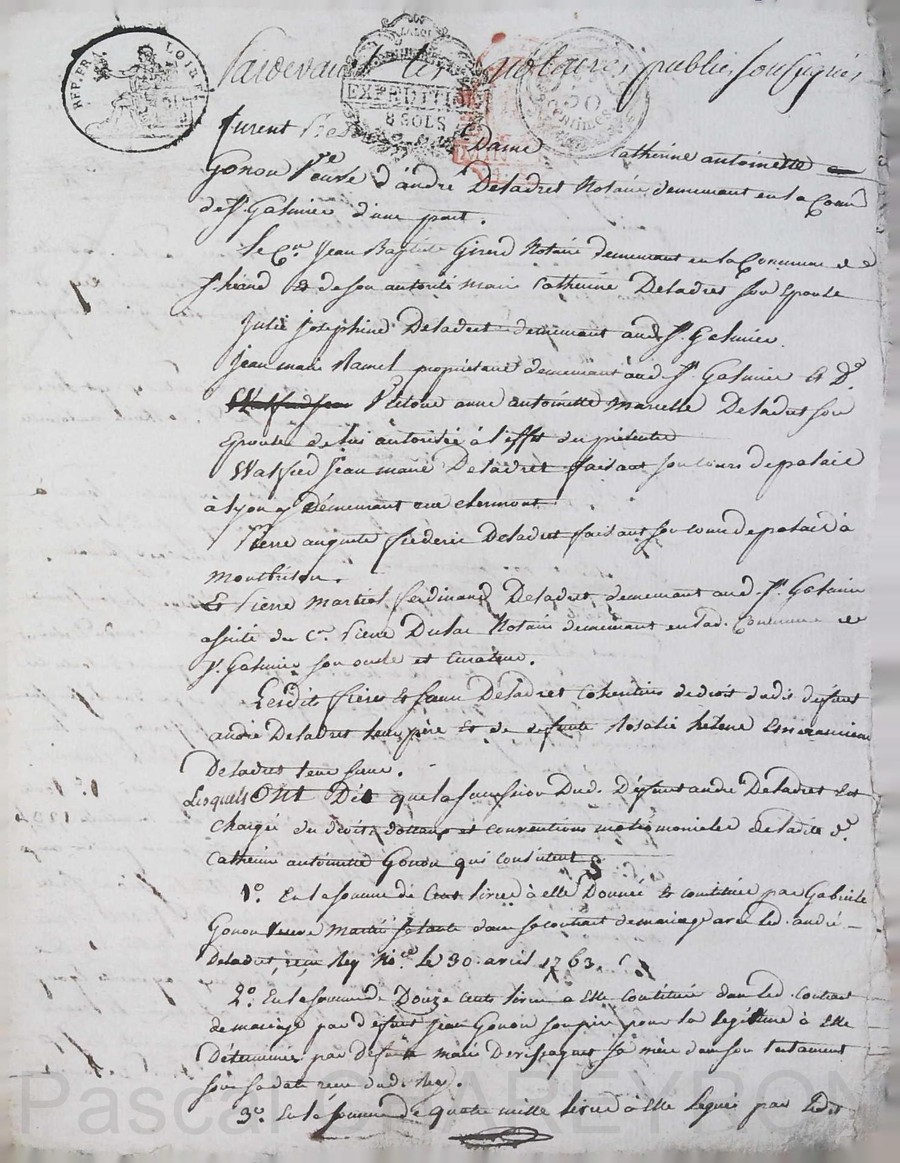 REP. FRA. LOIRE
EXPEDITION
8 SOLS
50
Centimes
Pardevant les notaires publics soussignés
furent Dame catherine antoinette
Gonon veuve d'andré Deladret Notaire demeurant en la Comm
de St. Galmier d'une part.
le Cen Jean Baptiste Girard Notaire demeurant en la Commune de
& de son autorité marie catherine Deladret son Epouse
Julie Josephine Deladret demeurant aud. St. Galmier.
Jean marie Ramel propriétaire demeurant aud St. Galmier et De
Victoire anne antoinette Marcelle Deladret son
Epouse de lui autorisée à l'effet des présentes
Walfred Jean marie Deladret faisant son cours de palais
à Lyon y demeurant rue clermont
Pierre auguste frederic Deladret faisant son cours de palais à
Montbrison.
Et Pierre Martial ferdinand Deladret demeurant aud St. Galmier
assisté du Cen Pierre Dulac Notaire demeurant en lad. Commune de
St. Galmier son oncle et Curateur.
Lesdits frères & sœurs Deladret cohéritiers de droit dudit défunt
andré Deladret leur père et de defunte Rosalie hélène
Deladret leur sœur.
Lesquels ONT Dit que la succession Dud. Défunt andré Deladret Est
chargée des droits, dotaux et conventions matrimoniales de ladite De
Catherine antoinette Gonon qui consistent
1°. En la somme de Cent livres à elle Donnée & constituée par Gabrielle
Gonon veuve dans son contrat de mariage avec led. andré
Deladret, reçu Rey Nore le 30. avril 1763.
2°. En la somme de Douze Cents livres à Elle Constituée dans led. contrat
de mariage par défunt Jean Gonon son père pour la légitime à elle
Déterminée par défunte marie sa mère dans son testament
sous sa date reçu dud. Rey.
3°. En la somme de quatre mille livres à Elle leguée par ledit
Pascal CHAREYRON